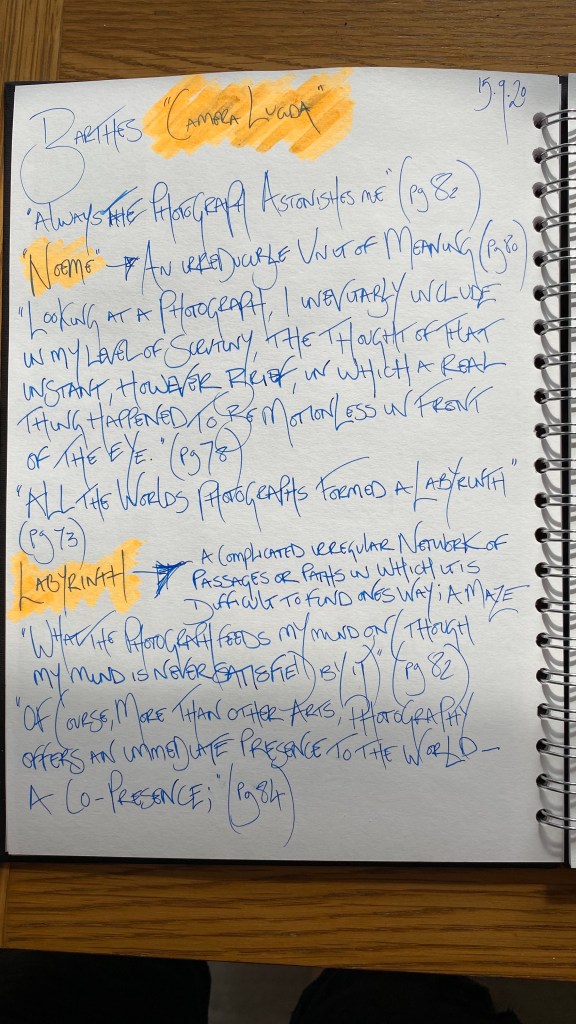 15.9.20
BARTHES "CAMERA LUCIDA"
"ALWAYS THE PHOTOGRAPH ASTONISHES ME" (pg 82)
"NOEME" → AN IRREDUCIBLE UNIT OF MEANING (pg 80)
"LOOKING AT A PHOTOGRAPH, I INEVITABLY INCLUDE
IN MY LEVEL OF SCRUTINY, THE THOUGHT OF THAT
INSTANT, HOWEVER BRIEF, IN WHICH A REAL
THING HAPPENED TO BE MOTIONLESS IN FRONT
OF THE EYE." (pg 78)
"ALL THE WORLDS PHOTOGRAPHS FORMED A LABYRINTH"
(pg 73)
LABYRINTH → A COMPLICATED IRREGULAR NETWORK OF
PASSAGES OR PATHS IN WHICH IT IS
DIFFICULT TO FIND ONES WAY; A MAZE
"WHAT THE PHOTOGRAPH FEEDS MY MIND ON (THOUGH
MY MIND IS NEVER SATISFIED BY IT)" (pg 82)
"OF COURSE, MORE THAN OTHER ARTS, PHOTOGRAPHY
OFFERS AN IMMEDIATE PRESENCE TO THE WORLD –
A CO-PRESENCE;" (pg 84)